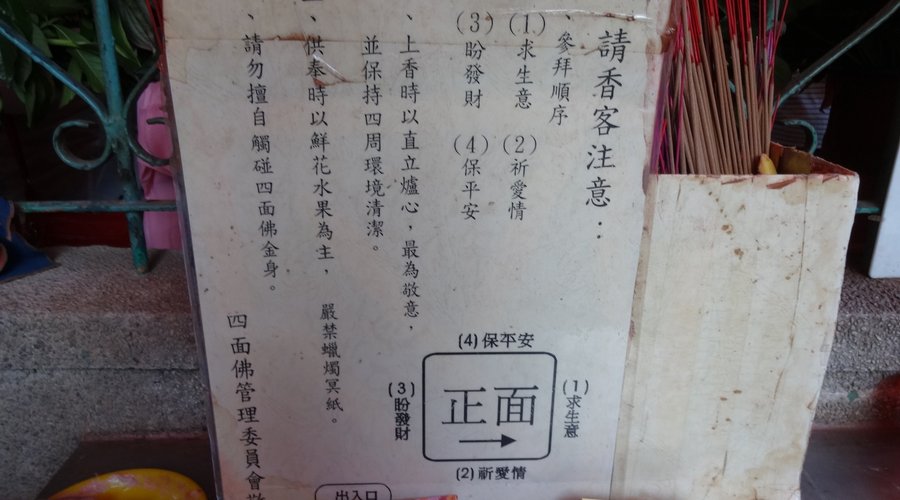 請香客注意：
、參拜順序
(1)求生意 (2)祈愛情
(3)盼發財 (4)保平安
、上香時以直立爐心，最為敬意，
並保持四周環境清潔。
、供奉時以鮮花水果為主， 嚴禁蠟燭冥紙。
、請勿擅自觸碰四面佛金身。
四面佛管理委員會
(4)保平安
(3)盼發財
正面
→
(1)求生意
(2)祈愛情
出入口